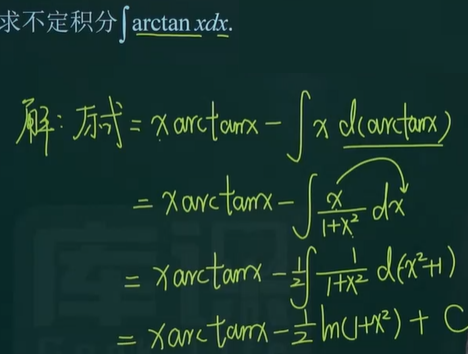 求不定积分∫arctan xdx.
解：原式 = xarctanx - ∫x d(arctanx)
= xarctanx - ∫x/(1+x²) dx
= xarctanx - 1/2∫1/(1+x²) d(x²+1)
= xarctanx - 1/2 ln(1+x²) + C
库课